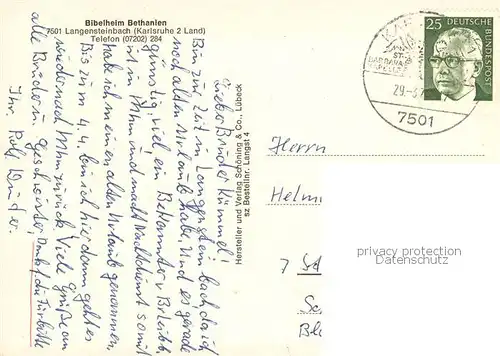 Bibelheim Bethanien
7501 Langensteinbach (Karlsruhe 2 Land)
Telefon (07202) 284
Lieber Bruder Kümmel!
Bin zur Zeit in Langenstein bach, da ich
noch alten Urlaub habe. Und es gerade
günstig, weil ein Bekannter v. Bleibt
ist in Ulm und macht Nachtdienst somit
habe ich meinen alten Urlaub genommen,
Bis zum 4.4. bin ich hier dann geht es
wieder nach Ulm zurück. Viele Grüße an
alle Brüder u. Geschwister, Dank f. die Fürbitte
Ihr Rolf
Hersteller und Verlag Schöning & Co., Lübeck
sz Bestellnr. Langst 4
25 DEUTSCHE BUNDESPOST
ST.
BARBARA
KAPELLE
29.-3.
7501
Herrn
Helm
7
privacy protection
Datenschutz